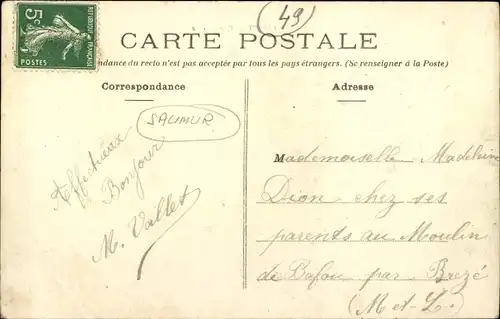 (49)
5c
POSTES
REPUBLIQUE FRANÇAISE
CARTE POSTALE
ndance du recto n'est pas acceptée par tous les pays étrangers. (Se renseigner à la Poste)
Correspondance
Adresse
SAUMUR
Affectueux
Bonjour
M. Vallet
Mademoiselle Madeleine
Dion chez ses
parents au Moulin
de Bafou par Brezé
(M et L.)